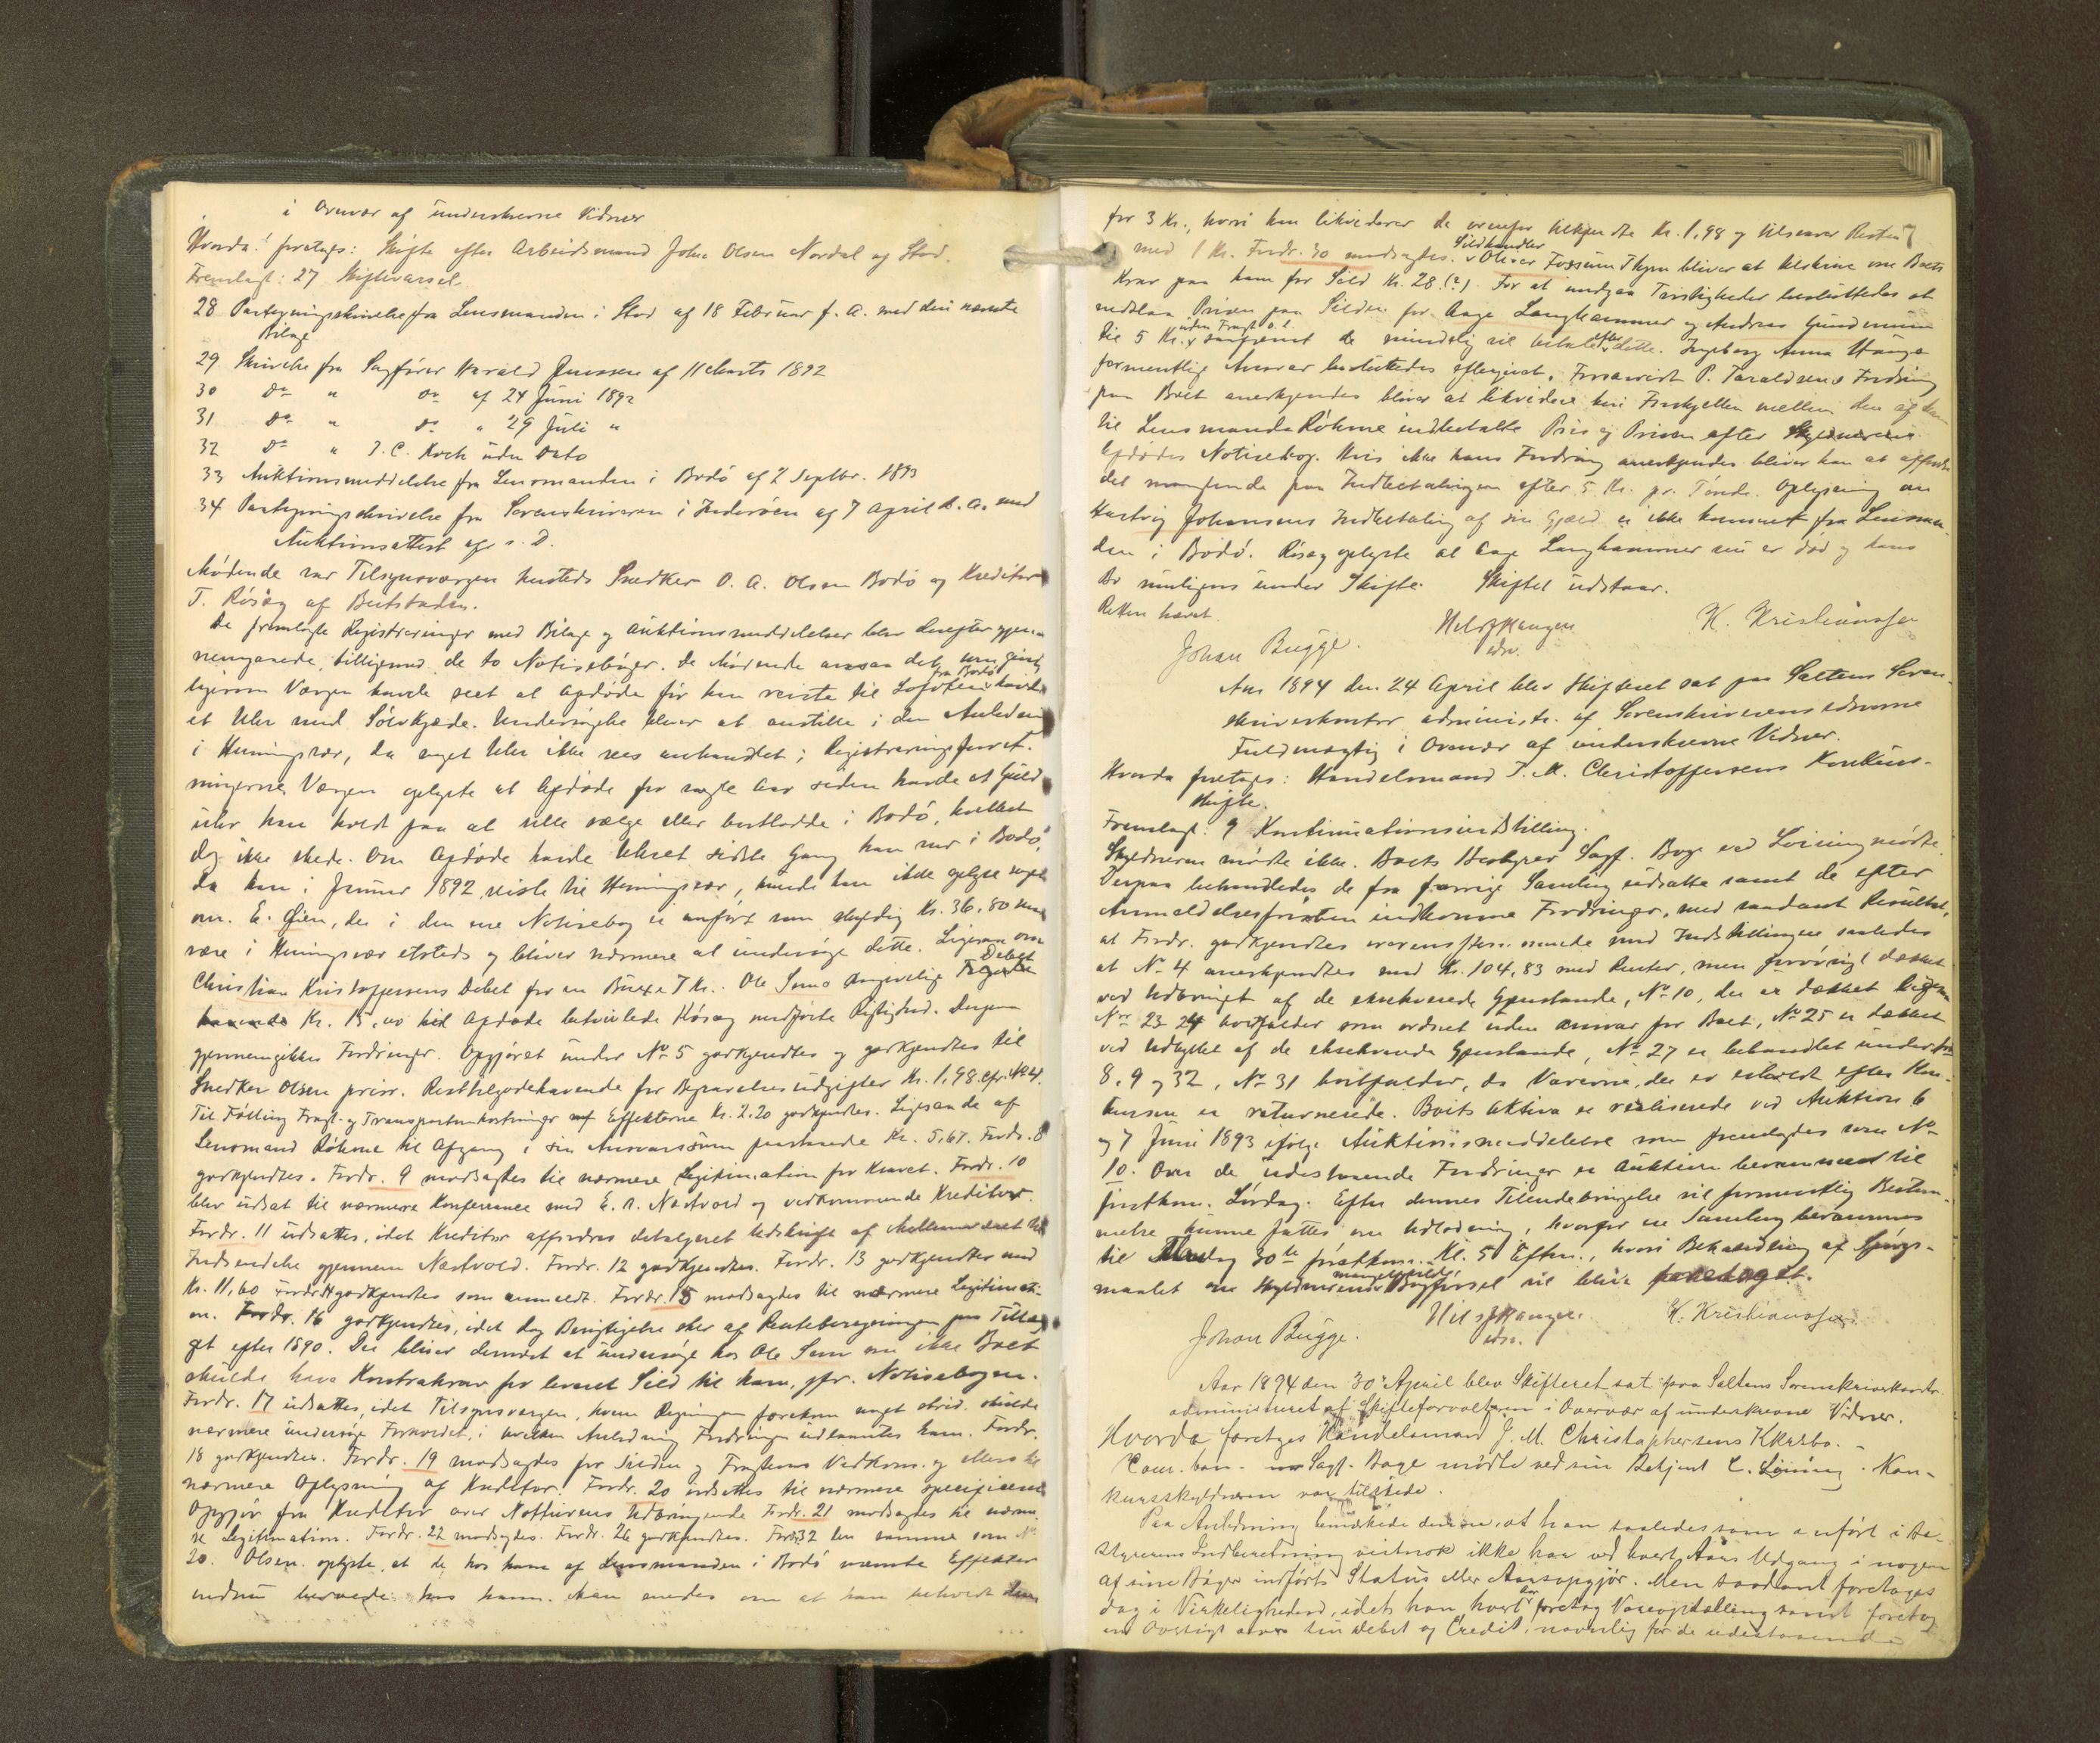 i Overvær af underskrevne Vidner
Hvorda foretages: Skifte efter Arbeidsmand Johan Olsen Nordal af Stod.
Fremlagt: 27 Skiftevarsel.
28 Paategningsskrivelse fra Lensmanden i Stod af 18 Februar f. A. med deri nævnte
Bilage
29 Skrivelse fra Sagfører Harald Jenssen af 11 Marts 1892
30 do " do af 24 Juni 1892
31 do " do " 29 Juli "
32 do " J. C. Koch uden Dato
33 Auktionsmeddelelse fra Lensmanden i Bodø af 2 Septbr. 1893
34 Paategningsskrivelse fra Sorenskriveren i Inderøen af 7 April d. A. med
Auktionsattest af s. D.
Mødende var Tilsynsværgen hersteds Snedker O. A. Olsen Bodø og Kreditor
T. Røsæg af Beitstaden.
De fremlagte Registreringer med Bilage og Auktionsmeddelelser blev derefter gjen-
nemgaaede, tilligemed de to Notisebøger. De Mødende
ligesom Værgen havde seet at Afdøde før han reiste til Lofoten fra Bodø havde
et Uhr med Sølvkjæde. Undersøgelse bliver at anstille i den Anledning
i Henningsvær, da noget Uhr ikke sees anhandlet i Registreringsforret-
ningerne. Værgen oplyste at Afdøde for nogle Aar siden havde et Guld
uhr han holdt paa at ville sælge eller bortlodde i Bodø, hvilket
dog ikke skede. Om Afdøde havde Uhret sidste Gang han var i Bodø,
da han i Januar 1892 reiste til Henningsvær, kunde han ikke oplyse noget
om. E. Øien, der i den ene Notisebog er anført som skyldig Kr. 36,80 maa
være i Henningsvær etsteds og bliver nærmere at undersøge dette. Ligesom om
Christian Kristoffersens Debet for en Buxe 7 Kr. Ole Sems angivelige Debet
Kr. 15,00 til Afdøde betvivlede Røsæg Rigtighed. Derpaa
gjennemgikkes Fordringer. Opgjøret under No 5 godkjendtes og godkjendtes til
Snedker Olsen prior. Resttilgodehavende for Begravelsesudgifter Kr. 1,98 cfr. No 4.
Til Følling Fragt- og Transportomkostninger af Effekterne Kr. 2.20 godkjendtes. Ligesaa de af
Lensmand Røhme til Afgang i sin Ansvarssum paastaaede Kr. 5,67. Fordr. 8
godkjendtes. Fordr. 9 modsagdes til nærmere Legitimation for Kravet. Fordr. 10
blev udsat til nærmere Konference med E. A. Næstvold og vedkommende Kreditor.
Fordr. 11 udsattes, idet Kreditor affordres detaljeret Udskrift af
Indsendelse gjennem Næstvold. Fordr. 12 godkjendtes. Fordr. 13 godkjendtes med
Kr. 11,60 Fordr 14 godkjendtes som anmeldt. Fordr. 15 modsagdes til nærmere Legitimati-
on. Fordr. 16 godkjendtes, idet dog Berigtigelse sker af Renteberegningen
get efter 1890. Der bliver dernæst at undersøge hos Ole Sem om ikke Boet
skulde have Kontrakrav for leveret Sild til ham, jfr. Notisebogen.
Fordr. 17 udsattes, idet Tilsynsværgen, hvem Regningen forekom noget skulde
nærmere undersøge Forholdet, i hvilken Anledning Fordringen udlaantes ham. Fordr.
18 godkjendtes. Fordr. 19 modsagdes for Sildens og Fragtens Vedkom. og ellers til
nærmere Oplysning af Kreditor. Fordr. 20 udsattes til nærmere specificeret
Opgjør fra Kreditor over Notturens Udbringende Fordr. 21 modsagdes til nærme-
re Legitimation. Fordr. 22 modsagdes. Fordr. 26 godkjendtes. Fordr 32 den samme som No
20. Olsen oplyste, at de hos ham af Lensmanden i Bodø nævnte Effekter
endnu beroede hos ham. Man enedes om at han beholdt dem
for 3 Kr., hvori han likviderer de ovenfor tilkjendte Kr. 1,98 og tilsvarer Resten
med 1 Kr. Fordr. 30 modsagdes. Sildhandler Oliver Fossum Thyn bliver at tilskrive om Boets
Krav paa ham for Sild Kr. 28 (?) For at undgaa Tvistigheder besluttedes at
nedslaa Prisen paa Silden for Aage Langhammer og Andreas Gundersen
til 5 Kr. uden Fragt o. l. saafremt de mindelig vil betale efter dette. Ingeborg Anna
formentlige Ansvar besluttedes eftergivet. Forsaavidt P. Taraldsens Fordring
paa Boet anerkjendes bliver at likvidere heri Forskjellen mellem den af ham
til Lensmand Røhme indbetalte Pris og Prisen efter
Afdødes Notisebog. Hvis ikke hans Fordring anerkjendes bliver han at affordre
det manglende paa Indbetalingen efter 5 Kr. pr. Tønde. Oplysning om
Hartvig Johansens Indbetaling af sin Gjæld er ikke kommet fra Lensman-
den i Bodø. Røsæg oplyste at Aage Langhammer nu er død og hans
Bo muligens under Skifte. Skiftet udstaar.
Retten hævet.
Johan Bugge. Nils Hangen edsv. K. Kristiansen
Aar 1894 den 24 April blev Skifteret sat paa Saltens Soren-
skriverkontor administr. af Sorenskriverens edsvorne
Fuldmægtig i Overvær af underskrevne Vidner.
Hvorda foretages: Handelsmand J. M. Christoffersens Konkurs-
skifte.
Fremlagt: 9 Kontinuationsindstilling.
Skyldneren mødte ikke. Boets Bestyrer Sagf. Boge ved Løining mødte.
Derpaa behandledes de fra forrige Samling udsatte samt de efter
Anmeldelsesfristen indkomne Fordringer, med saadant Resultat,
at Fordr. godkjendtes overensstemmende med Indstillingen saaledes
at No 4 anerkjendtes med Kr. 104,83 med Renter, men forøvrigt dækket
ved Udbringet af de ekskverede Gjenstande, No 10, der er dækket ligesom
Nr 23-24 bortfalder som ordnet uden Ansvar for Boet, No 25 er dækket
ved Udbyttet af de ekskverede Gjenstande, No 27 er behandlet under No
8, 9 og 32, No 31 bortfalder, da Varerne, der er erholdt efter Kon-
kursen er returnerede. Boets Aktiva er realiserede ved Auktion 6
og 7 Juni 1893 ifølge Auktionsmeddelelse som fremlagdes som No
10. Over de udestaaende Fordringer er Auktion berammet til
førstkom. Lørdag. Efter dennes Tilendebringelse vil formentlig Bestem-
melse kunne fattes om Udlodning, hvorfor en Samling berammes
til Mandag 30te førstkom. Kl. 5 Eftm., hvori Behandling af Spørgs-
maalet om Skyldnerens mangelfulde Bogførsel vil blive foretaget.
Johan Bugge. Nils Hangen edsv. K. Kristiansen
Aar 1894 den 30 April blev Skifteret sat paa Saltens Sorenskriverkontor
administreret af Skifteforvalteren i Overvær af underskrevne Vidner.
Hvorda foretages Handelsmand J. M. Christophersens Kkrsbo. -
Sagf. Boge mødte ved sin Betjent C. Løining. Kon-
kursskyldneren var tilstede.
Paa Anledning bemærkede denne, at han saaledes som anført i Be-
styrerens Indberetning vistnok ikke har ved hvert Aars Udgang i nogen
af sine Bøger indført Status eller Aarsopgjør. Men saadant foretoges
dog i Virkeligheden, idet han hvert Aar foretog Vareoptælling samt foretog
en Oversigt over sin Debet og Credit, navnlig for de udestaaende